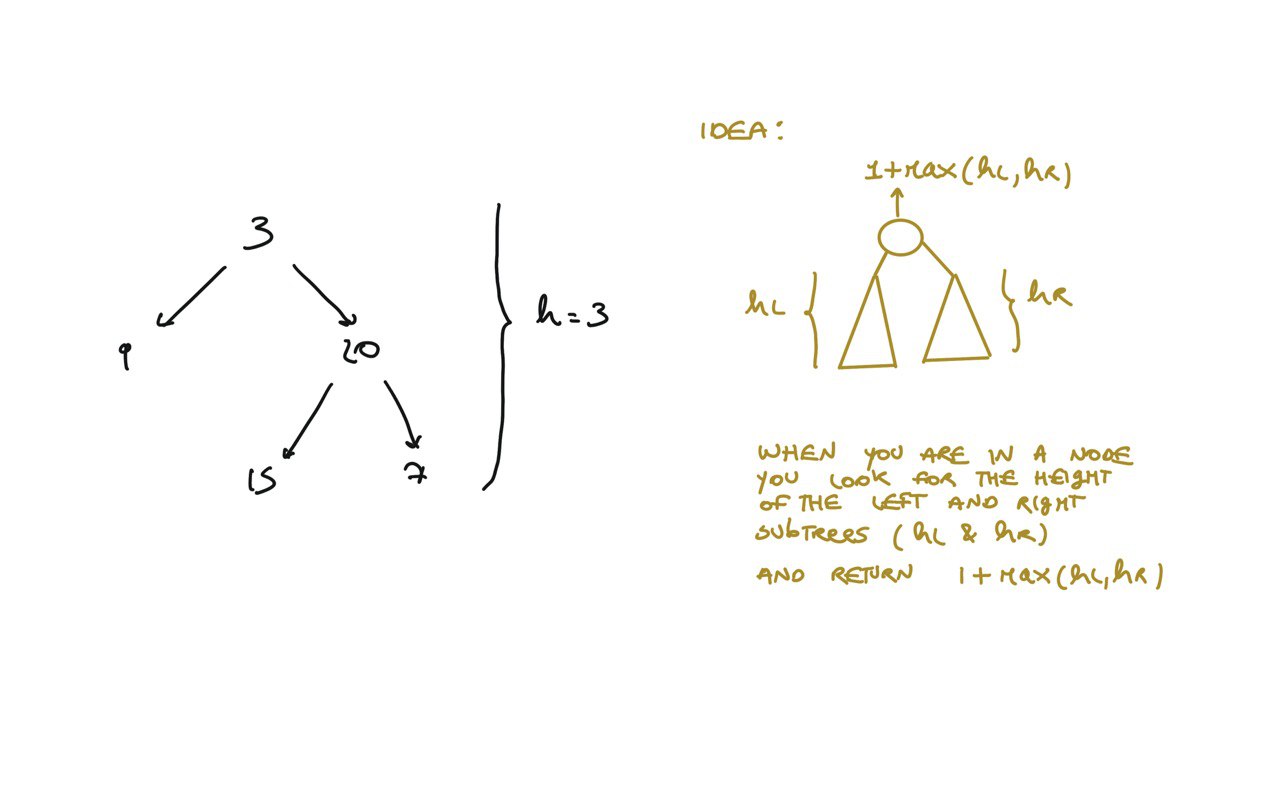 3
9
20
15
7
h=3
IDEA:
1+MAX(hL,hR)
hL
hR
WHEN YOU ARE IN A NODE
YOU LOOK FOR THE HEIGHT
OF THE LEFT AND RIGHT
SUBTREES (hL & hR)
AND RETURN 1+MAX(hL,hR)